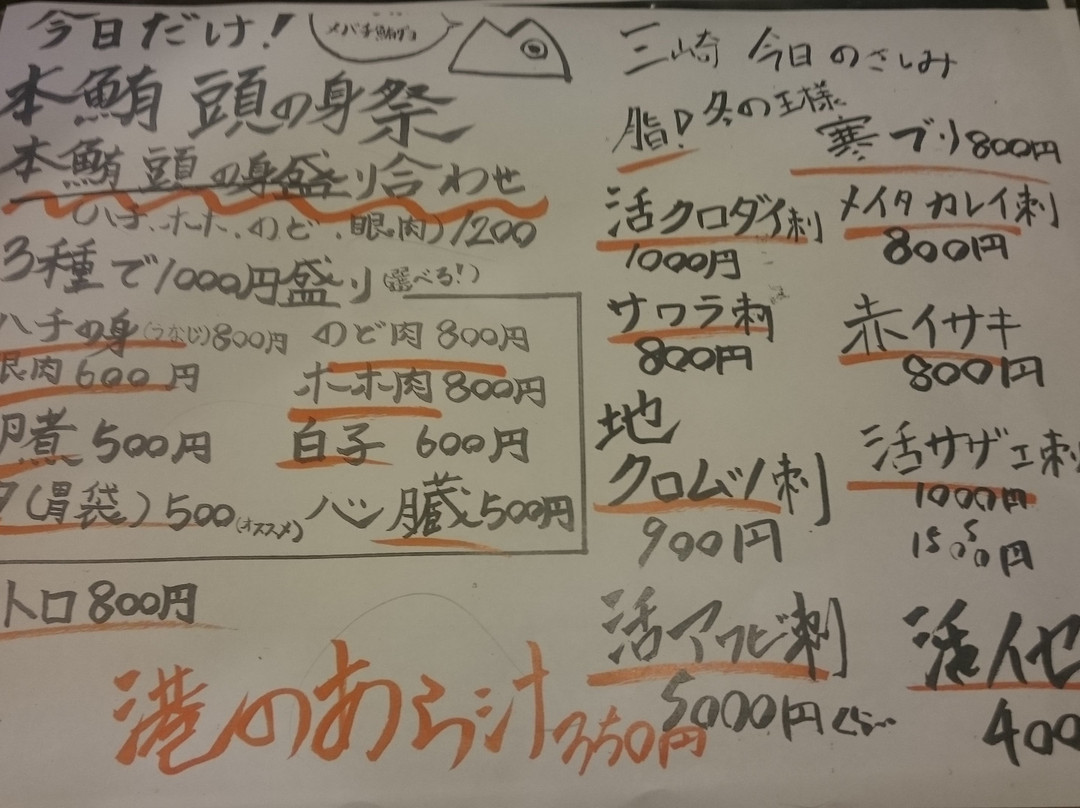 今日だけ!
本鮪 頭の身祭
本鮪 頭の身盛り合わせ
(ハチ、ホホ、のど、眼肉)1200
3種で1000円盛り(選べる!)
ハチの身(うなじ)800円 のど肉 800円
眼肉 600円 ホーホ肉 800円
煮 500円 白子 600円
(胃袋)500(オススメ) ハツ 臓 500円
トロ 800円
港のあら汁 350円
三崎 今日のさしみ
脂! 冬の王様
寒ブリ 800円
活クロダイ刺 メイタカレイ刺
1000円 800円
サワラ刺 赤イサキ
800円 800円
地
クロムツ刺 活サザエ刺
900円 1000円
1500円
活アワビ刺 活イセ
5000円ぐらい 400